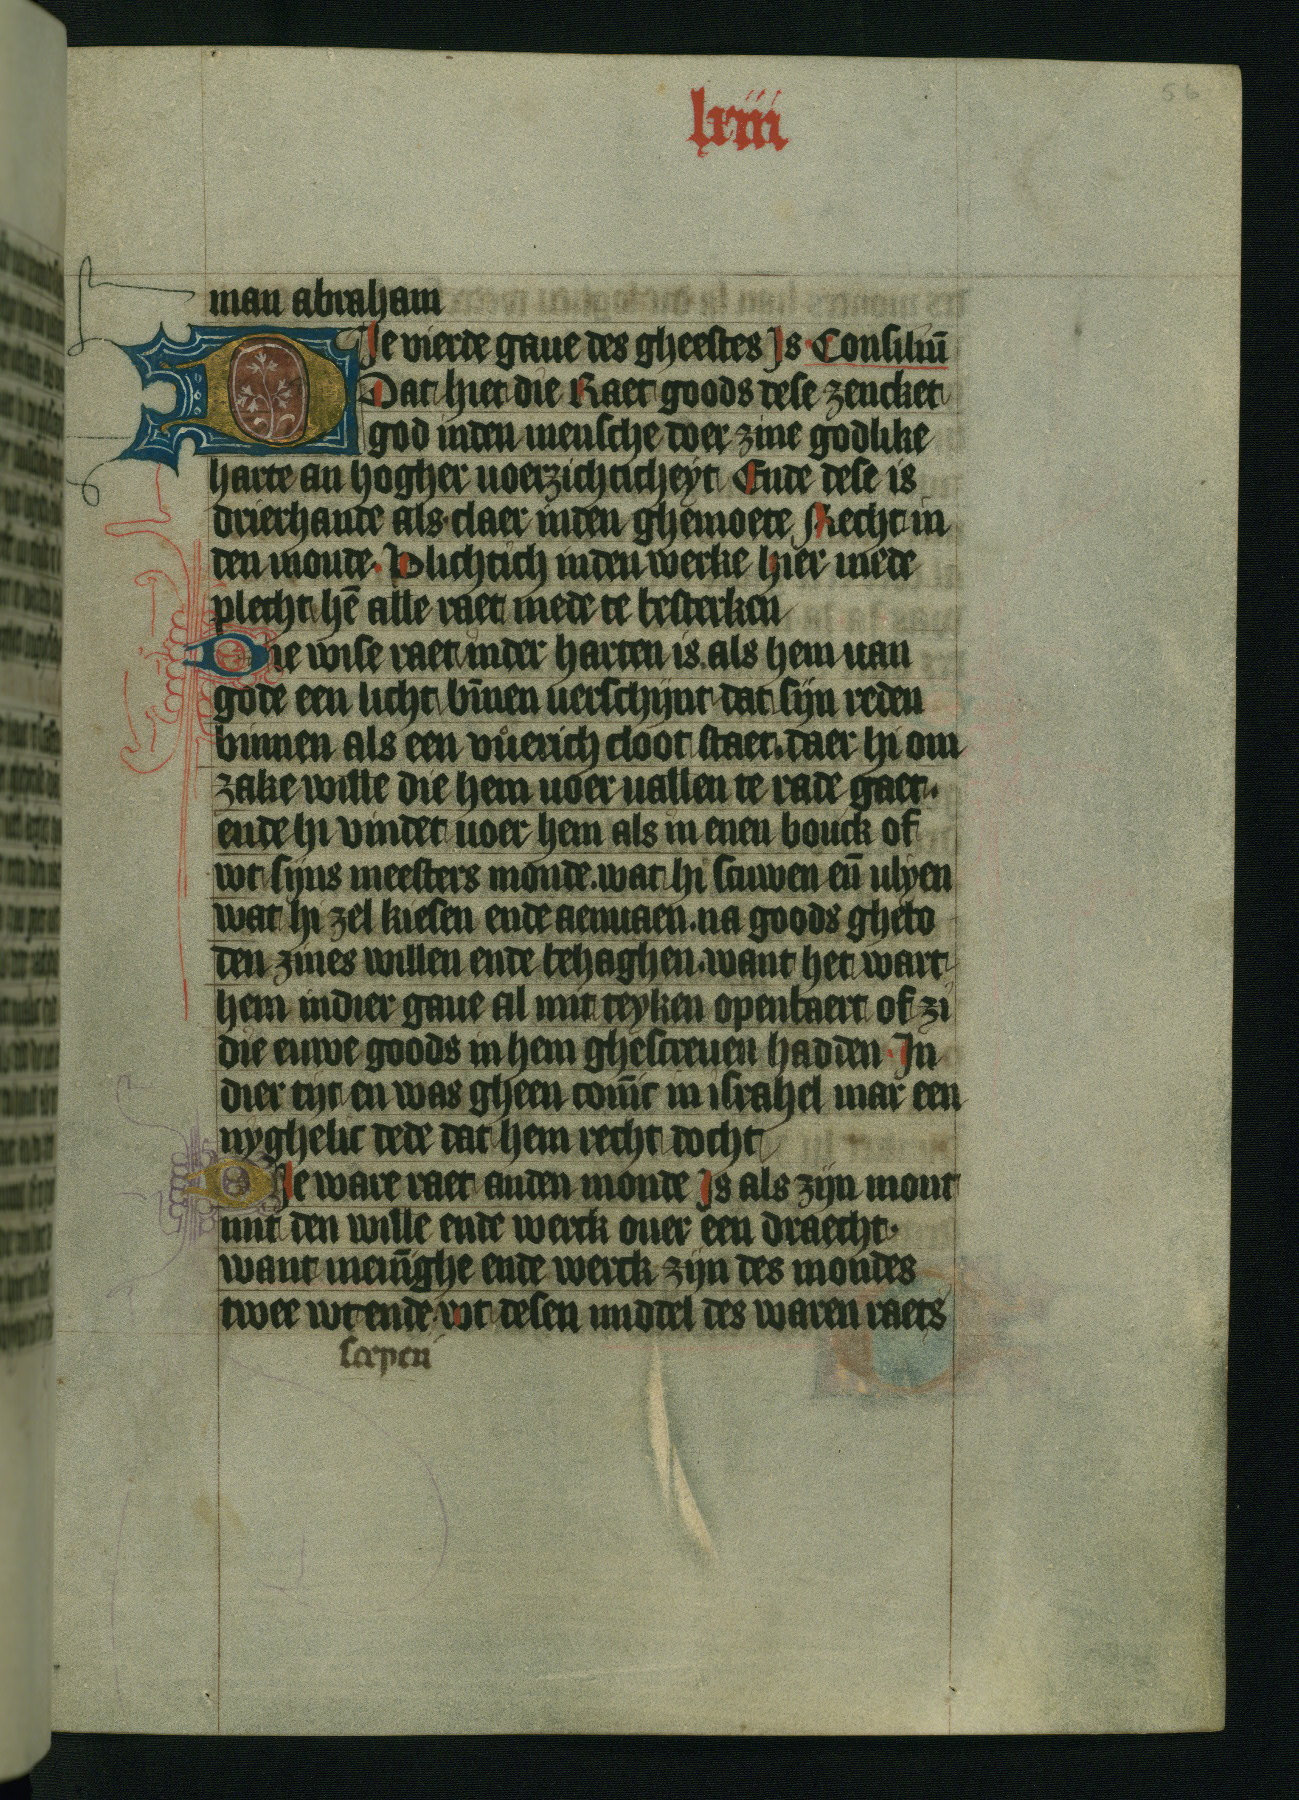 lxiii
56
man abraham
DIe vierde gaue des gheestes Is Consiliū
Dat hiet die Raet goods dese zencket
god inden mensche doer zine godlike
harte an hogher uoerzichticheyt Ende dese is
drierhande als claer inden ghemoete Recht in
den monde. Plichtich inden werke hier mede
plecht hē alle raet mede te besterken
Die wise raet inder harten is als hem uan
gode een licht bīnen uerschijnt dat sijn reden
binnen als een vuerich cloot staet. daer hi om
zake wille die hem uoer uallen te rade gaet.
ende hi vindet uoer hem als in enen bouck of
wt sijns meesters monde. wat hi scuwen eñ ulyen
wat hi zel kiesen ende aenuaen. na goods ghebo
den zines willen ende behaghen. want het wart
hem indier gaue al mit teyken openbaert of zi
die euwe goods in hem ghescreuen hadden In
dier tijt en was gheen conīc in israhel mar een
nyghelic dede dat hem recht docht
DIe ware raet anden monde Is als zijn mont
mit den wille ende werck ouer een draecht.
want menīghe ende werck zijn des mondes
twee wtende wt desen middel des waren raets